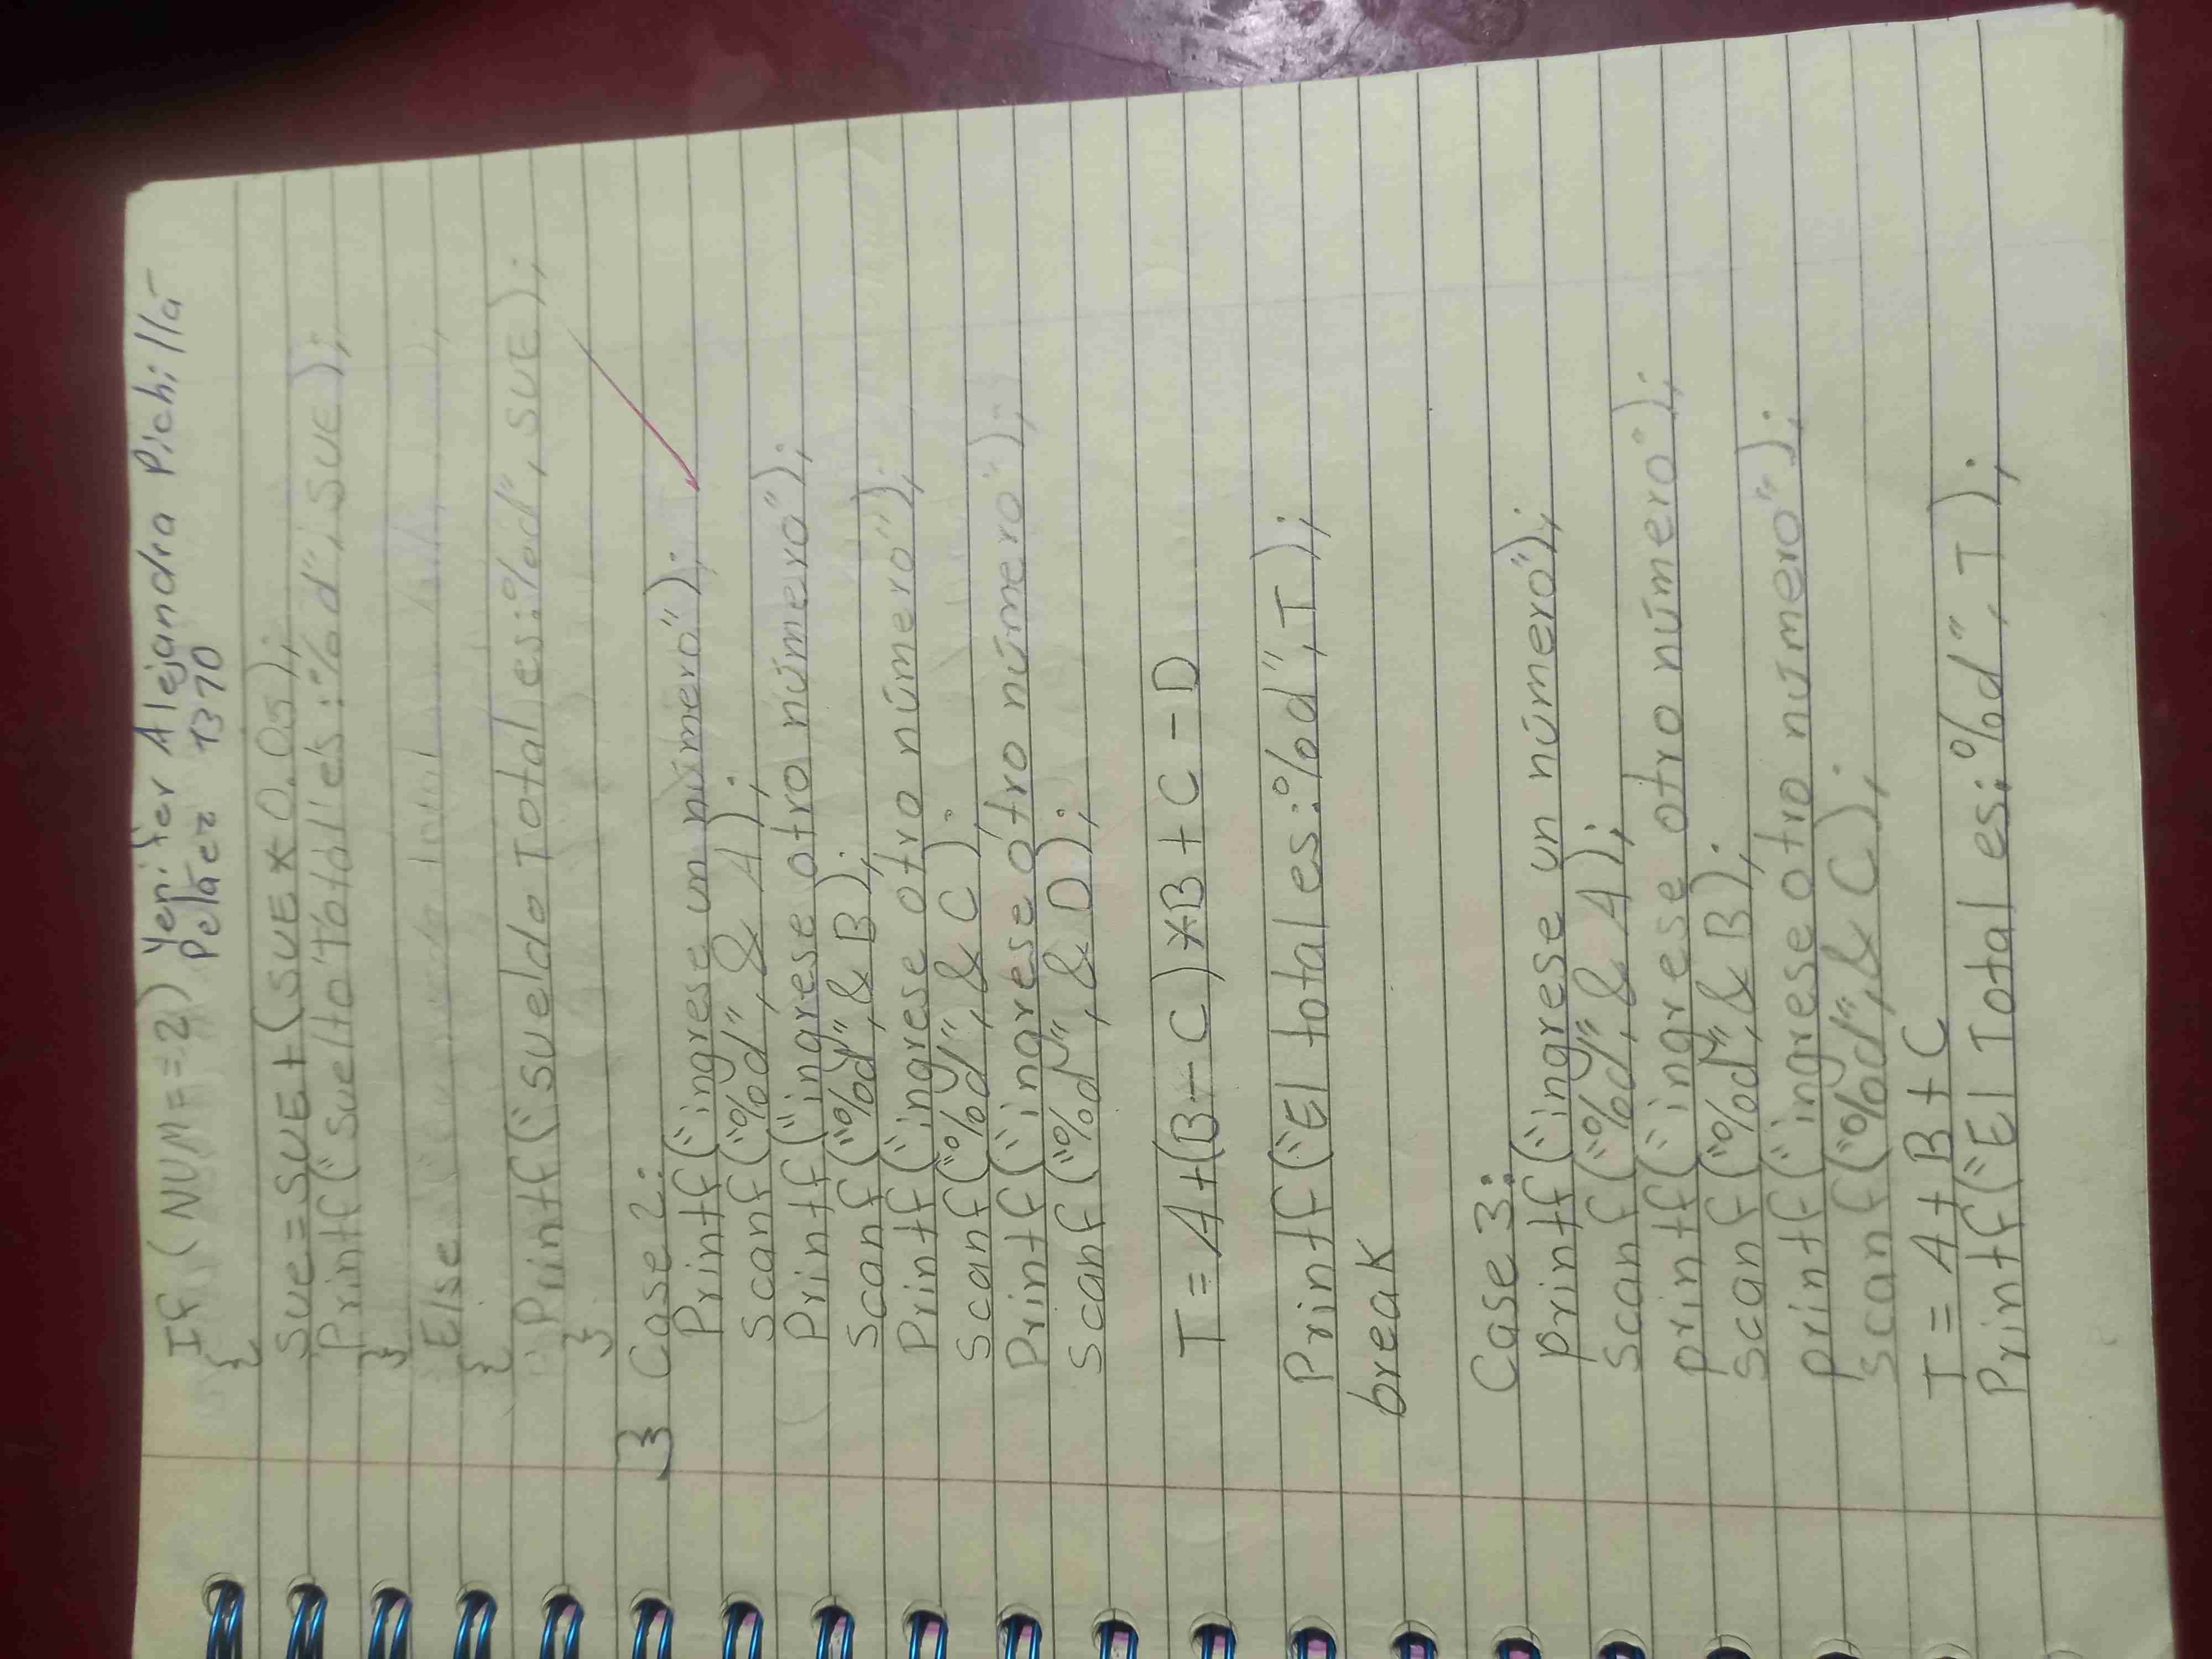 If (NUM==2) Yenifer Alejandra Pichilla
Peláez 1370
{
Sue=SUE+(SUE*0.05);
Printf("suelto Total es:%d", SUE);
}
Else
{
Printf("sueldo Total es:%d", SUE);
}
} Case 2:
Printf("ingrese un número");
Scanf("%d",& A);
Printf("ingrese otro número");
Scanf("%d",& B);
Printf("ingrese otro número");
Scanf("%d",& C);
Printf("ingrese otro número");
Scanf("%d",& D);
T=A+(B-C)*B+C-D
Printf("El total es:%d",T);
break
Case 3:
printf("ingrese un número");
Scanf("%d",& A);
printf("ingrese otro número");
Scanf("%d",& B);
printf("ingrese otro número");
Scanf("%d",& C);
T=A+B+C
Printf("El Total es:%d",T);